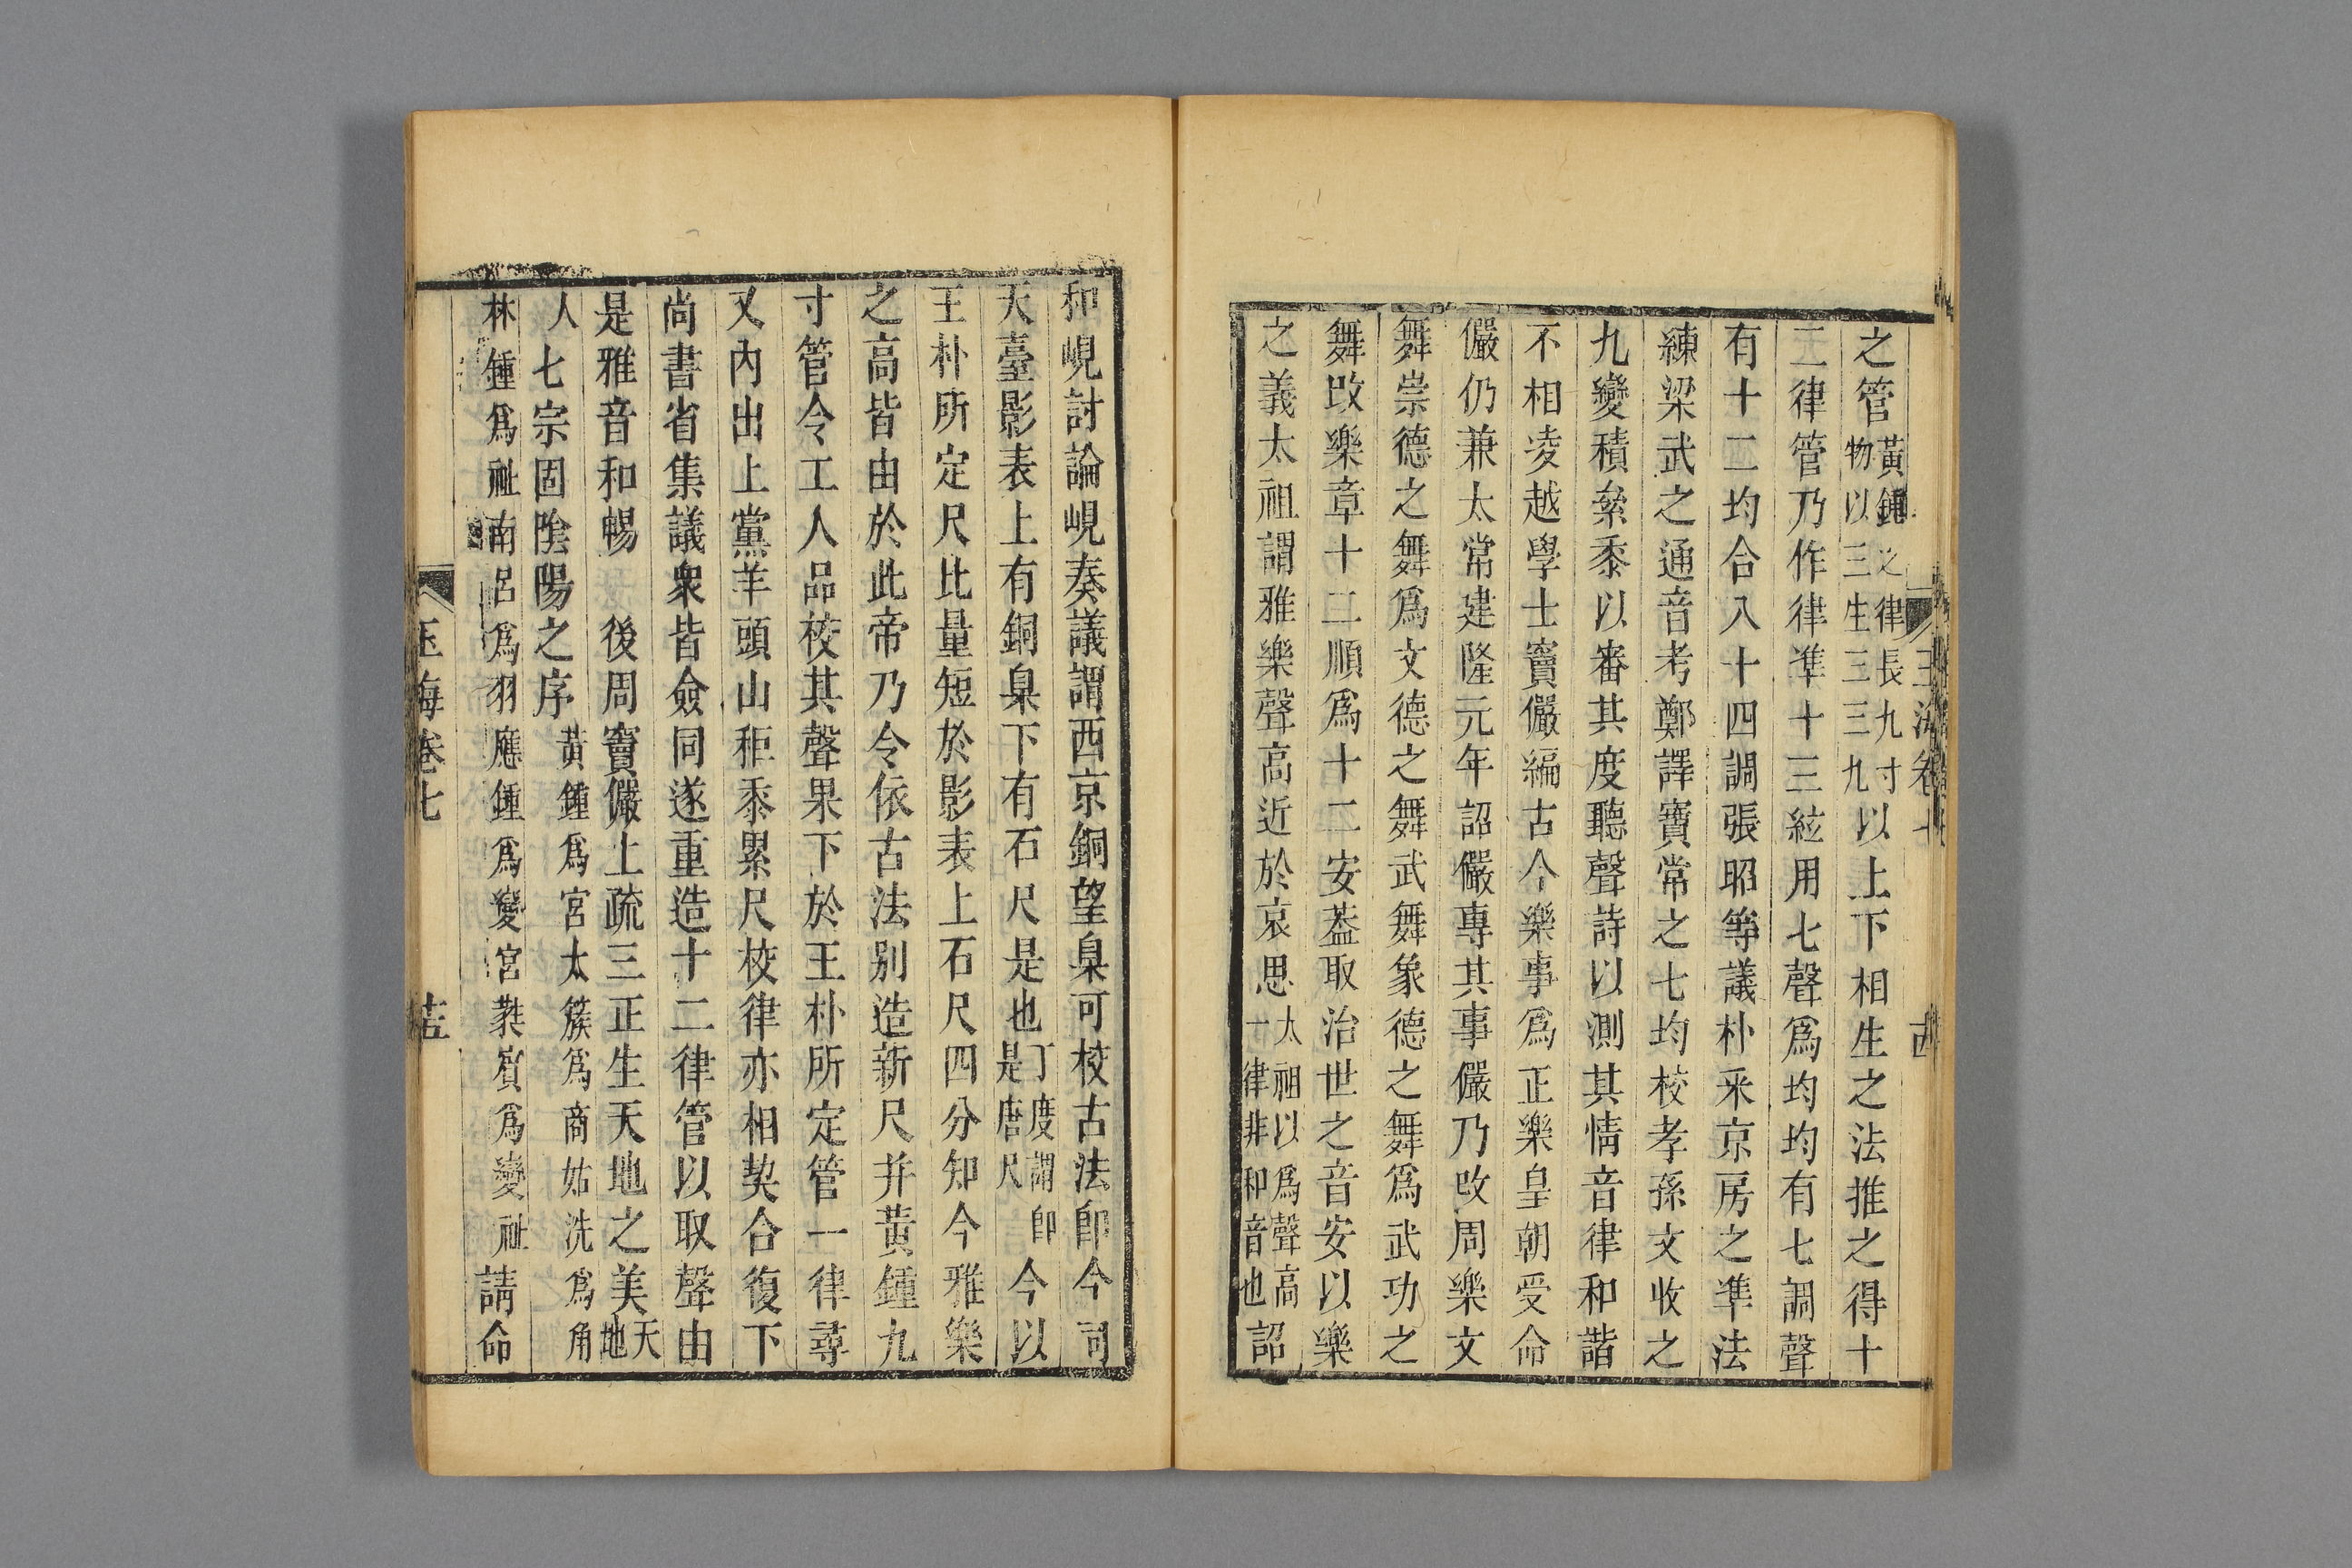 之管黃鍾之律長九寸物以三生三三九以上下相生之法推之得十
二律管乃作律準十三絃用七聲爲均均有七調聲
有十二均合八十四調張昭等議朴采京房之準法
練梁武之通音考鄭譯寶常之七均校孝孫文收之
九變積絫黍以審其度聽聲詩以測其情音律和諧
不相凌越學士竇儼編古今樂事爲正樂皇朝受命
儼仍兼太常建隆元年詔儼專其事儼乃改周樂文
舞崇德之舞爲文德之舞武舞象德之舞爲武功之
舞改樂章十二順爲十二安葢取治世之音安以樂
之義太祖謂雅樂聲高近於哀思太祖以爲聲高一律非和音也詔
和峴討論峴奏議謂西京銅望臬可校古法卽今司
天臺影表上有銅臬下有石尺是也丁度謂卽是唐尺今以
王朴所定尺比量短於影表上石尺四分知今雅樂
之高皆由於此帝乃令依古法别造新尺并黃鍾九
寸管令工人品校其聲果下於王朴所定管一律尋
又內出上黨羊頭山秬黍累尺校律亦相契合復下
尚書省集議衆皆僉同遂重造十二律管以取聲由
是雅音和暢 後周竇儼上疏三正生天地之美天地
人七宗固陰陽之序黃鍾爲宮太簇爲商姑洗爲角
林鍾爲祉南呂爲羽應鍾爲變宮蕤賓爲變祉請命
玉海卷七 十五